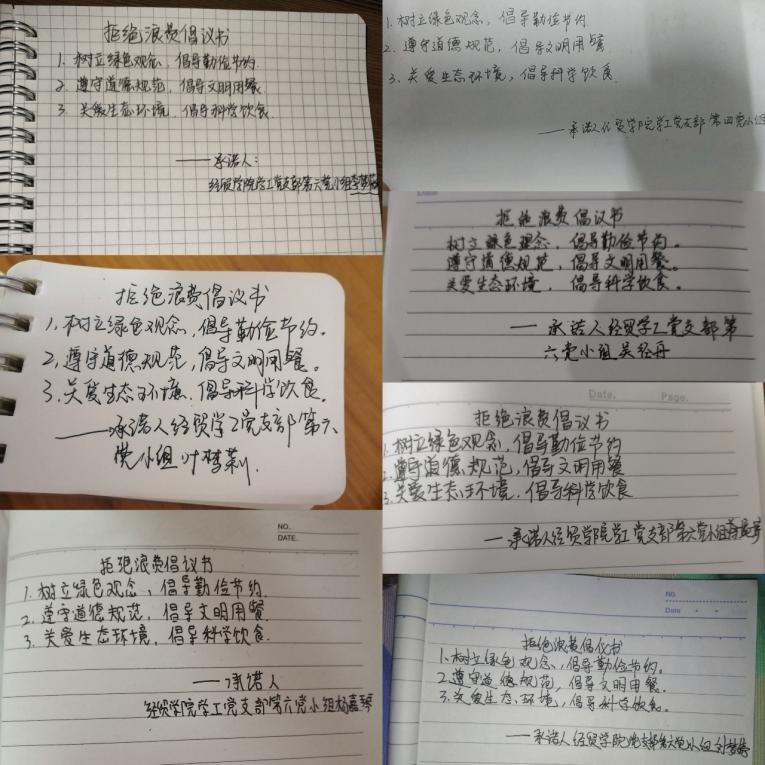 拒绝浪费倡议书
1. 树立绿色观念，倡导勤俭节约.
2. 遵守道德规范，倡导文明用餐.
3. 关爱生态环境，倡导科学饮食.
——承诺人：
经贸学院学工党支部第六党小组
1. 树立绿色观念，倡导勤俭节约.
2. 遵守道德规范，倡导文明用餐
3. 关爱生态环境，倡导科学饮食.
——承诺人经贸学院学工党支部第四党小组
拒绝浪费倡议书
树立绿色理念，倡导勤俭节约。
遵守道德规范，倡导文明用餐。
关爱生态环境，倡导科学饮食。
——承诺人经贸学工党支部第
六党小组吴经丹
拒绝浪费倡议书
1, 树立绿色观念，倡导勤俭节约。
2, 遵守道德规范，倡导文明用餐。
3, 关爱生态环境，倡导科学饮食。
——承诺人经贸学工党支部第六
党小组叶梦莉.
Date. Page.
拒绝浪费倡议书
1. 树立绿色观念，倡导勤俭节约
2. 遵守道德规范，倡导文明用餐
3. 关爱生态环境，倡导科学饮食
——承诺人经贸学院学工党支部第六党小组
NO.
DATE.
拒绝浪费倡议书
1. 树立绿色观念，倡导勤俭节约.
2. 遵守道德规范，倡导文明用餐.
3. 关爱生态环境，倡导科学饮食.
——承诺人
经贸学院学工党支部第六党小组杨嘉琴
NO
Date
拒绝浪费倡议书
1. 树立绿色观念，倡导勤俭节约.
2. 遵守道德规范，倡导文明用餐.
3. 关爱生态环境，倡导科学饮食.
——承诺人 经贸学院党支部第六党小组 刘梦婷